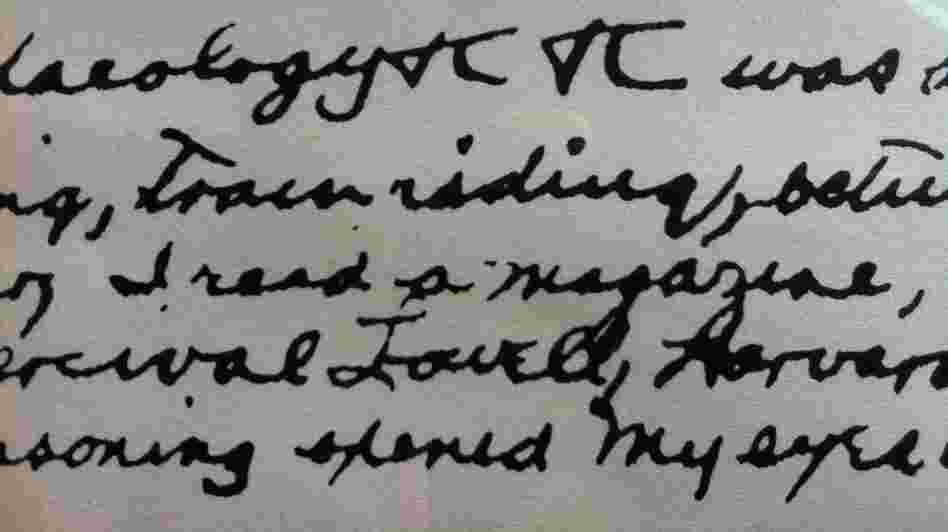 haeology It was
ng, train riding, betw
I read a magazine,
ercival Lowell, Harvard
asoning opened my eyes